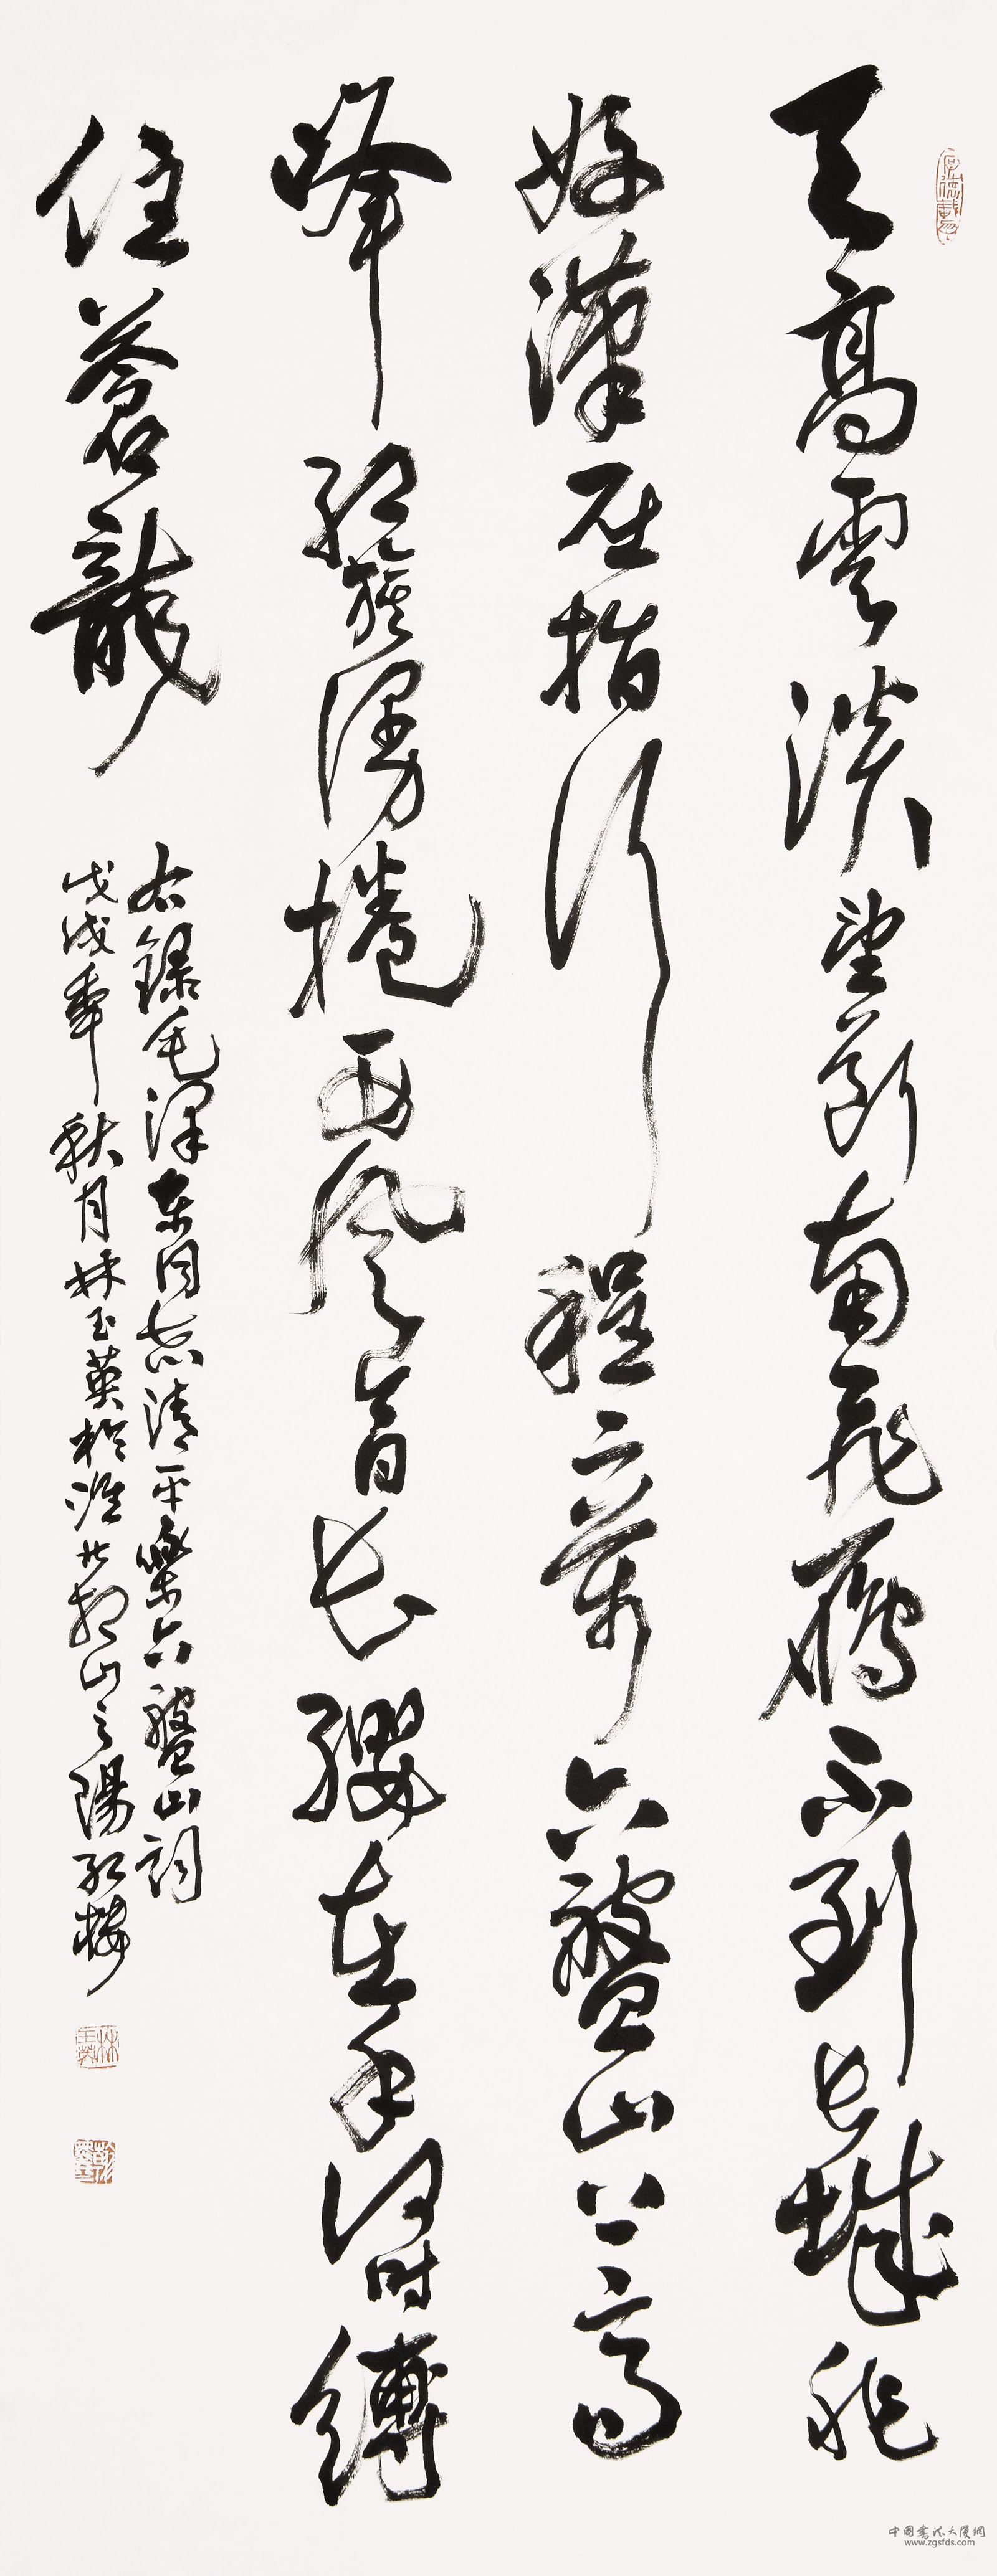 厚德載物
天高雲淡望斷南飛雁不到長城非
好漢屈指行程二萬六盤山上高
峰紅旗漫捲西風今日長纓在手何時縛
住蒼龍
右録毛澤東同志清平樂六盤山詞
戊戌年秋月林玉英於淮北相山之陽紅樓
林玉英
中国書法大厦網
www.zgsfds.com